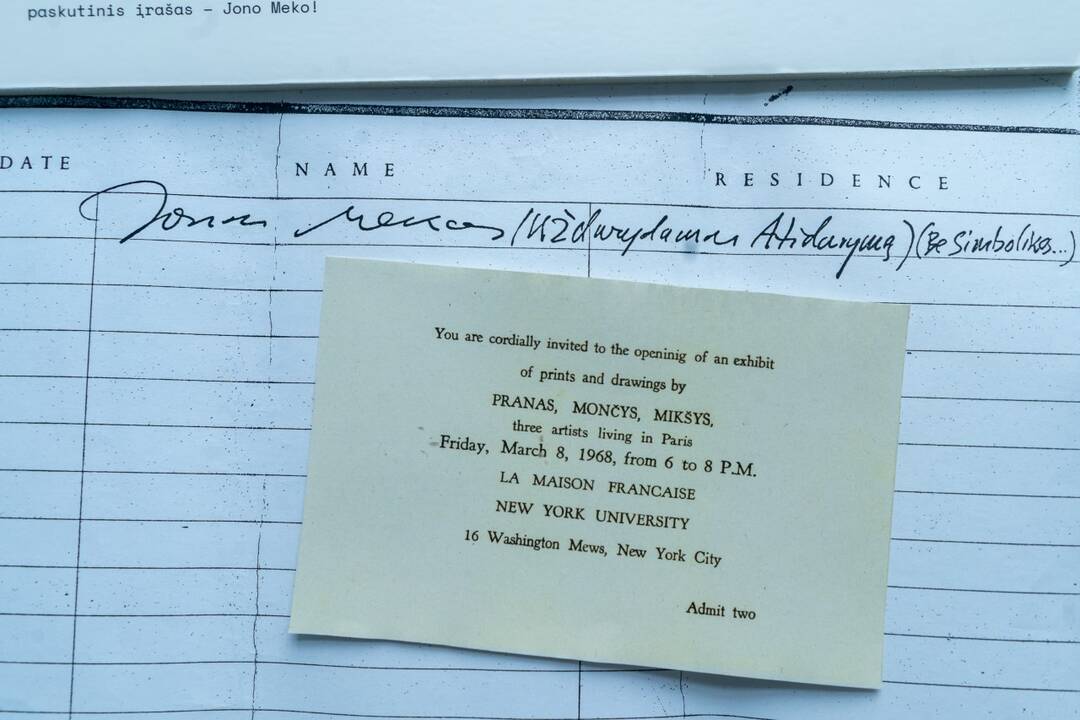 paskutinis įrašas – Jono Meko!
DATE NAME RESIDENCE
Jonas Mekas (Uždarydamas Atidarymą) (Be Simbolikos...)
You are cordially invited to the openinig of an exhibit
of prints and drawings by
PRANAS, MONČYS, MIKŠYS,
three artists living in Paris
Friday, March 8, 1968, from 6 to 8 P.M.
LA MAISON FRANCAISE
NEW YORK UNIVERSITY
16 Washington Mews, New York City
Admit two